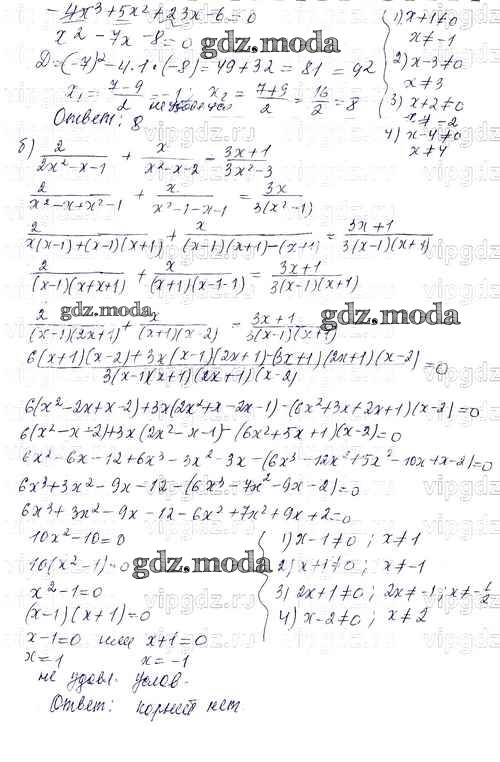 -4x³+5x²+23x-6=0
x²-7x-8=0
D=(-7)²-4·1·(-8)=49+32=81=9²
x₁=(7-9)/2=-1; x₂=(7+9)/2=16/2=8
Ответ: 8
1) x+1≠0
x≠-1
2) x-3≠0
x≠3
3) x+2≠0
x≠-2
4) x-4≠0
x≠4
б) 2/(2x²-x-1) + x/(x²-x-2) = (3x+1)/(3x²-3)
2/(x²-x+x²-1) + x/(x²-1-x-1) = 3x/(3(x²-1))
2/(x(x-1)+(x-1)(x+1)) + x/((x-1)(x+1)-(x+1)) = (3x+1)/(3(x-1)(x+1))
2/((x-1)(x+x+1)) + x/((x+1)(x-1-1)) = (3x+1)/(3(x-1)(x+1))
2/((x-1)(2x+1)) + x/((x+1)(x-2)) - (3x+1)/(3(x-1)(x+1))
(6(x+1)(x-2)+3x(x-1)(2x+1)-(3x+1)(2x+1)(x-2))/(3(x-1)(x+1)(2x+1)(x-2))=0
6(x²-2x+x-2)+3x(2x²+x-2x-1)-(6x²+3x+2x+1)(x-2)=0
6(x²-x-2)+3x(2x²-x-1)-(6x²+5x+1)(x-2)=0
6x²-6x-12+6x³-3x²-3x-(6x³-12x²+5x²-10x+x-2)=0
6x³+3x²-9x-12-(6x³-7x²-9x-2)=0
6x³+3x²-9x-12-6x³+7x²+9x+2=0
10x²-10=0
10(x²-1)=0
x²-1=0
(x-1)(x+1)=0
x-1=0 или x+1=0
x=1 x=-1
не удовл. услов.
Ответ: корней нет.
1) x-1≠0; x≠1
2) x+1≠0; x≠-1
3) 2x+1≠0; 2x≠-1; x≠-1/2
4) x-2≠0; x≠2
gdz.moda
gdz.moda
gdz.moda
gdz.moda
gdz.moda